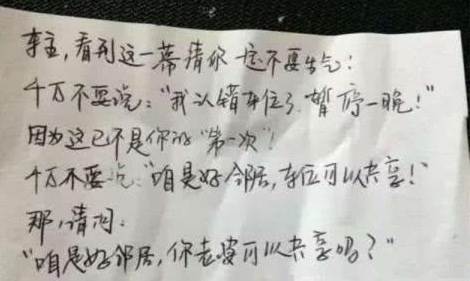 车主,看到这一幕请你一定不要生气!
千万不要说:"我认错车位了,暂停一晚!"
因为这已不是你的"第一次"!
千万不要说:"咱是好邻居,车位可以共享!"
那,请问:
"咱是好邻居,你老婆可以共享吗?"